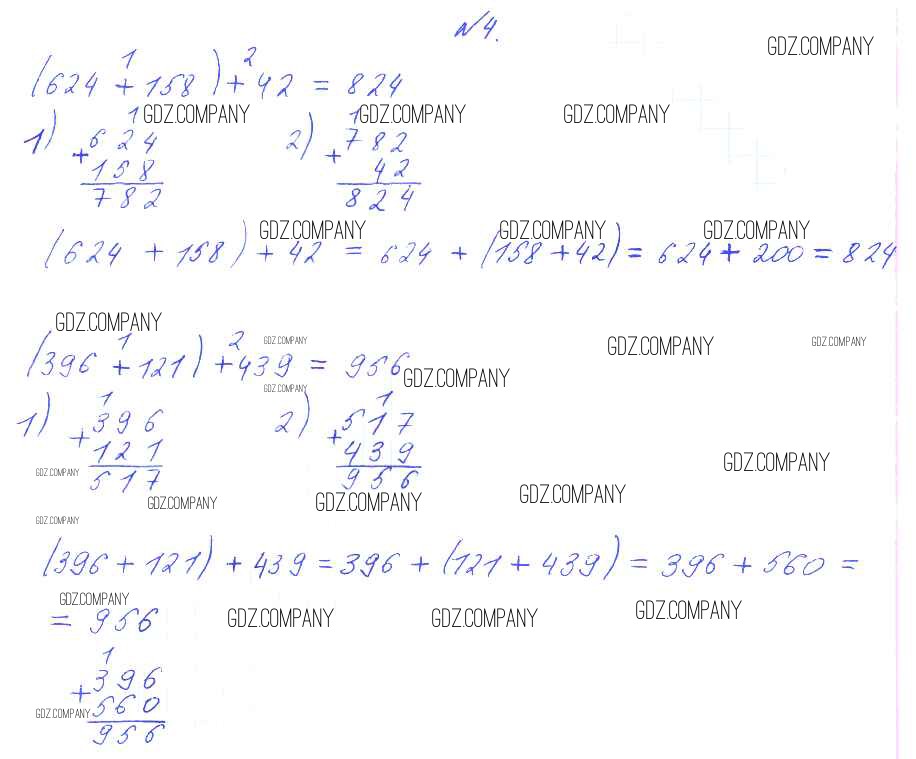 №4.
GDZ.COMPANY
1 2
(624 + 158) + 42 = 824
GDZ.COMPANY GDZ.COMPANY GDZ.COMPANY
1) 1 2) 1
+ 624 + 782
158 42
782 824
GDZ.COMPANY GDZ.COMPANY GDZ.COMPANY
(624 + 158) + 42 = 624 + (158 + 42) = 624 + 200 = 824
GDZ.COMPANY
1 2 GDZ.COMPANY GDZ.COMPANY GDZ.COMPANY
(396 + 121) + 439 = 956
GDZ.COMPANY GDZ.COMPANY
1) 1 2) 1
+ 396 + 517
121 439
GDZ.COMPANY GDZ.COMPANY
517 956
GDZ.COMPANY GDZ.COMPANY GDZ.COMPANY
GDZ.COMPANY
(396 + 121) + 439 = 396 + (121 + 439) = 396 + 560 =
GDZ.COMPANY
= 956
GDZ.COMPANY GDZ.COMPANY GDZ.COMPANY
1
+ 396
560
GDZ.COMPANY
956